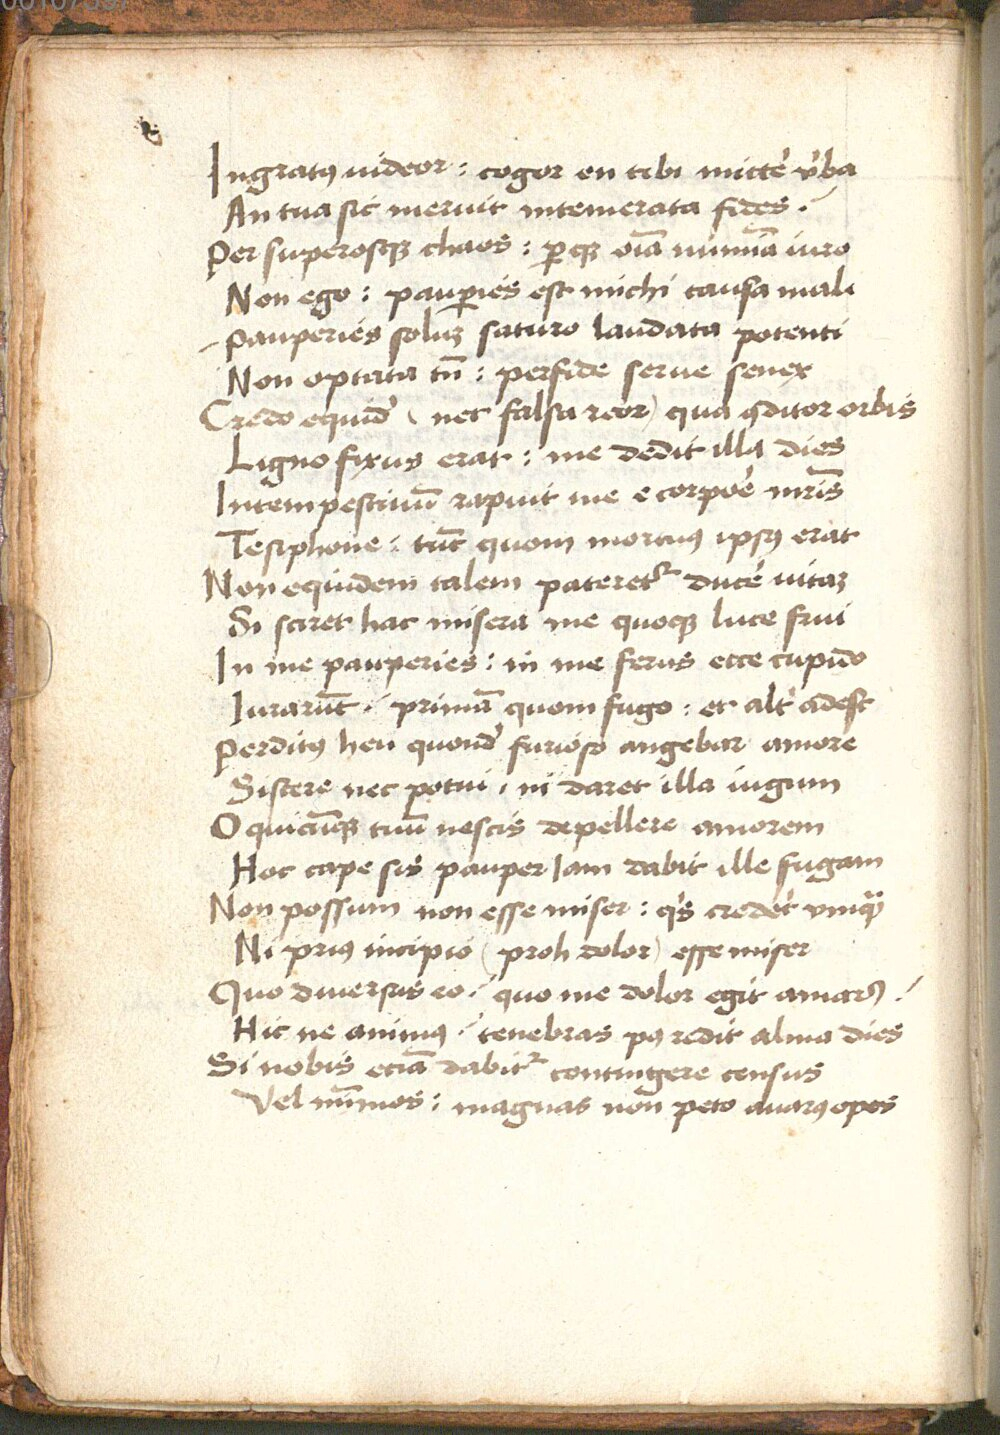 Ingratꝰ uideor : cogor en tibi mitte᷑ v᷑ba
An tua sic meruit intemerata fides ./
Per superosqꝫ chaos : ꝑqꝫ oīa numīa iuro
Non ego : pauꝑies est michi causa mali
Pauperies soluꝫ saturo laudata potenti
Non optata tn̄ : perfide serue senex
Credo equid᷑ ( nec falsa reor) qua ꝯditor orbis
Ligno fixus erat : me dedit illa dies
Intempestiuū rapuit me e corpoe᷑ mr̄is
Tesiphone : tūc quom mortuꝰ ipsꝰ erat
Non equidem talem pateret᷑ duce᷑ uitaꝫ
Si sciret hac misera me quoqꝫ luce frui
In me pauperies : in me ferus ecce cupido
Iurarūt ./ primā quom fugo : et alt᷑ adest
Perditꝰ heu quond᷑ furioso angebar amore
Sistere nec potui , ni daret illa iugum
O quicūqꝫ tuū nescis depellere amorem
Hoc cape sis pauper Iam dabit ille fugam
Non possum non esse miser : qͥs crede᷑t vmqᷓ
Ni priꝰ incipio ( proh dolor) esse miser
Quo diuersus eo ./ quo me dolor egit amarꝰ ./
Hic ne animꝰ ./ tenebras pꝰ redit alma dies
Si nobis etiā dabit᷑ contingere census
Vel mīimos : magnas non peto auarꝰ opes